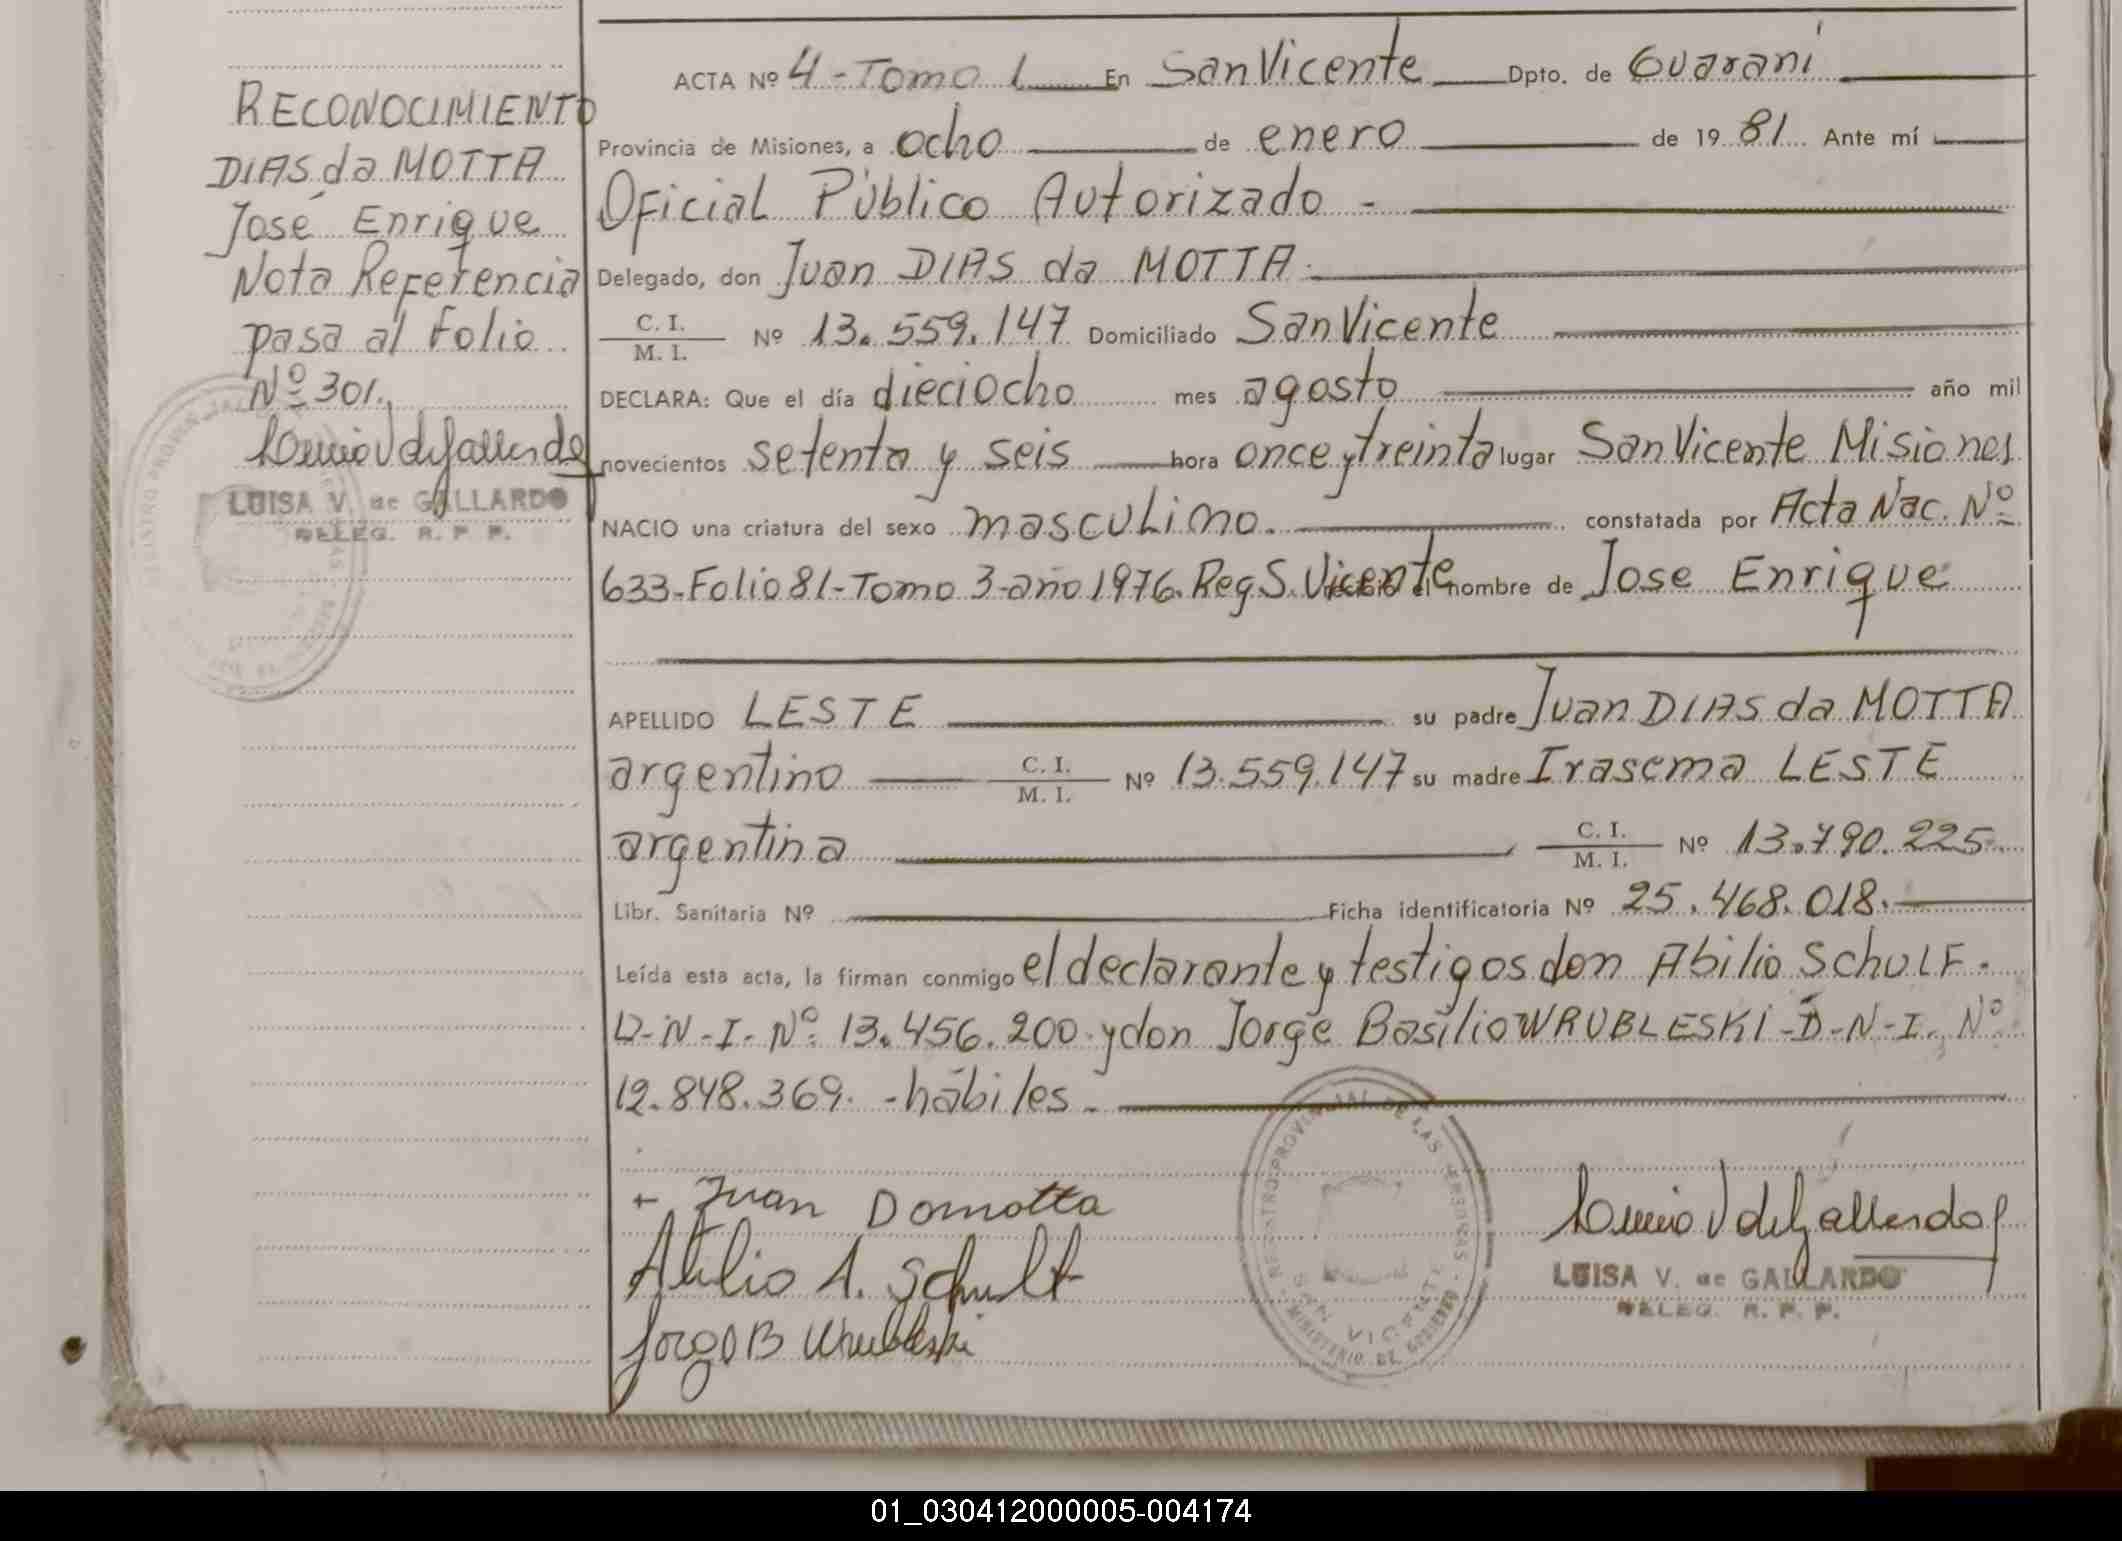 RECONOCIMIENTO
DIAS da MOTTA
José Enrique
Nota Referencia
pasa al Folio
Nº 301.
LUISA V. de GALLARDO
DELEG. R. P. P.
ACTA Nº 4 - Tomo 1 En San Vicente Dpto. de Guaraní
Provincia de Misiones, a ocho de enero de 1981. Ante mí
Oficial Público Autorizado -
Delegado, don Juan DIAS da MOTTA.
C. I. / M. I. Nº 13.559.147 Domiciliado San Vicente
DECLARA: Que el día dieciocho mes agosto año mil
novecientos setenta y seis hora once y treinta lugar San Vicente Misiones
NACIO una criatura del sexo masculino. constatada por Acta Nac. Nº
633-Folio 81-Tomo 3-año 1976. Reg S. Vicente nombre de Jose Enrique
APELLIDO LESTE su padre Juan DIAS da MOTTA
argentino C. I. / M. I. Nº 13.559.147 su madre Irasema LESTE
argentina C. I. / M. I. Nº 13.790.225.
Libr. Sanitaria Nº Ficha identificatoria Nº 25.468.018.
Leída esta acta, la firman conmigo el declarante y testigos don Abilio SchuLF.
D-N-I-Nº 13.456.200 y don Jorge Basilio WRUBLESKI-D-N-I. Nº
12.848.369. - hábiles -
+ Juan Domotta
Atilio A. Schult
Jorge B Wrubleski
SAN VICENTE
MINISTERIO DE GOBIERNO
LUISA V. de GALLARDO
DELEG. R. P. P.
01_030412000005-004174